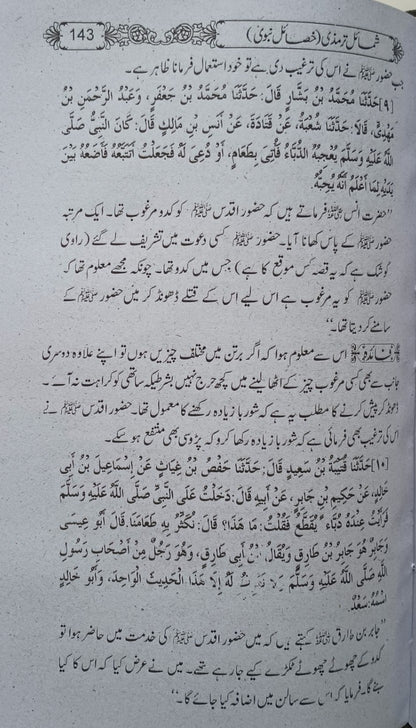 شمائل ترمذی (خصائل نبوی)
143
جب حضور ﷺ نے اس کی ترغیب دی ہے تو خود استعمال فرمانا ظاہر ہے۔
[۹] حَدَّثَنَا مُحَمَّدُ بْنُ بَشَّارٍ قَالَ: حَدَّثَنَا مُحَمَّدُ بْنُ جَعْفَرٍ، وَعَبْدُ الرَّحْمٰنِ بْنُ
مَهْدِيٍّ، قَالَا: حَدَّثَنَا شُعْبَةُ، عَنْ قَتَادَةَ، عَنْ أَنَسِ بْنِ مَالِكٍ قَالَ: كَانَ النَّبِيُّ صَلَّى
اللهُ عَلَيْهِ وَسَلَّمَ يُعْجِبُهُ الدُّبَّاءُ فَأُتِيَ بِطَعَامٍ، أَوْ دُعِيَ لَهُ فَجَعَلْتُ أَتَتَبَّعُهُ فَأَضَعُهُ بَيْنَ
يَدَيْهِ لِمَا أَعْلَمُ أَنَّهُ يُحِبُّهُ.
”حضرت انس ؓ فرماتے ہیں کہ حضور اقدس ﷺ کو کدو مرغوب تھا۔ ایک مرتبہ
حضور ﷺ کے پاس کھانا آیا۔ حضور ﷺ کسی دعوت میں تشریف لے گئے (راوی
کو شک ہے کہ یہ قصہ کس موقع کا ہے) جس میں کدو تھا۔ چونکہ مجھے معلوم تھا کہ
حضور ﷺ کو یہ مرغوب ہے اس لیے اس کے قتلے ڈھونڈ کر میں حضور ﷺ کے
سامنے کر دیتا تھا۔“
فائدہ: اس سے معلوم ہوا کہ اگر برتن میں مختلف چیزیں ہوں تو اپنے علاوہ دوسری
جانب سے بھی کسی مرغوب چیز کے اٹھا لینے میں کچھ حرج نہیں بشرطیکہ ساتھی کو کراہت نہ آئے۔
ڈھونڈ کر پیش کرنے کا مطلب یہ ہے کہ شوربا زیادہ رکھنے کا معمول تھا۔ حضور اقدس ﷺ نے
اس کی ترغیب بھی فرمائی ہے کہ شوربا زیادہ رکھا کرو کہ پڑوسی بھی منتفع ہو سکے۔
[۱۰] حَدَّثَنَا قُتَيْبَةُ بْنُ سَعِيدٍ قَالَ: حَدَّثَنَا حَفْصُ بْنُ غِيَاثٍ عَنْ إِسْمَاعِيلَ بْنِ أَبِي
خَالِدٍ، عَنْ حَكِيمِ بْنِ جَابِرٍ، عَنْ أَبِيهِ قَالَ: دَخَلْتُ عَلَى النَّبِيِّ صَلَّى اللهُ عَلَيْهِ وَسَلَّمَ
فَرَأَيْتُ عِنْدَهُ دُبَّاءً يُقَطَّعُ فَقُلْتُ: مَا هٰذَا؟ قَالَ: نُكَثِّرُ بِهِ طَعَامَنَا. قَالَ أَبُو عِيسَى
وَجَابِرٌ هُوَ جَابِرُ بْنُ طَارِقٍ وَيُقَالُ ابْنُ أَبِي طَارِقٍ، وَهُوَ رَجُلٌ مِنْ أَصْحَابِ رَسُولِ
اللهِ صَلَّى اللهُ عَلَيْهِ وَسَلَّمَ لَهُ إِلَّا هٰذَا الْحَدِيثَ الْوَاحِدَ، وَأَبُو خَالِدٍ
اسْمُهُ: سَعْدٌ.
”جابر بن طارق ؓ کہتے ہیں کہ میں حضور اقدس ﷺ کی خدمت میں حاضر ہوا تو
کدو کے چھوٹے چھوٹے ٹکڑے کیے جا رہے تھے۔ میں نے عرض کیا کہ اس کا کیا
بنے گا۔ فرمایا کہ اس سے سالن میں اضافہ کیا جائے گا۔“